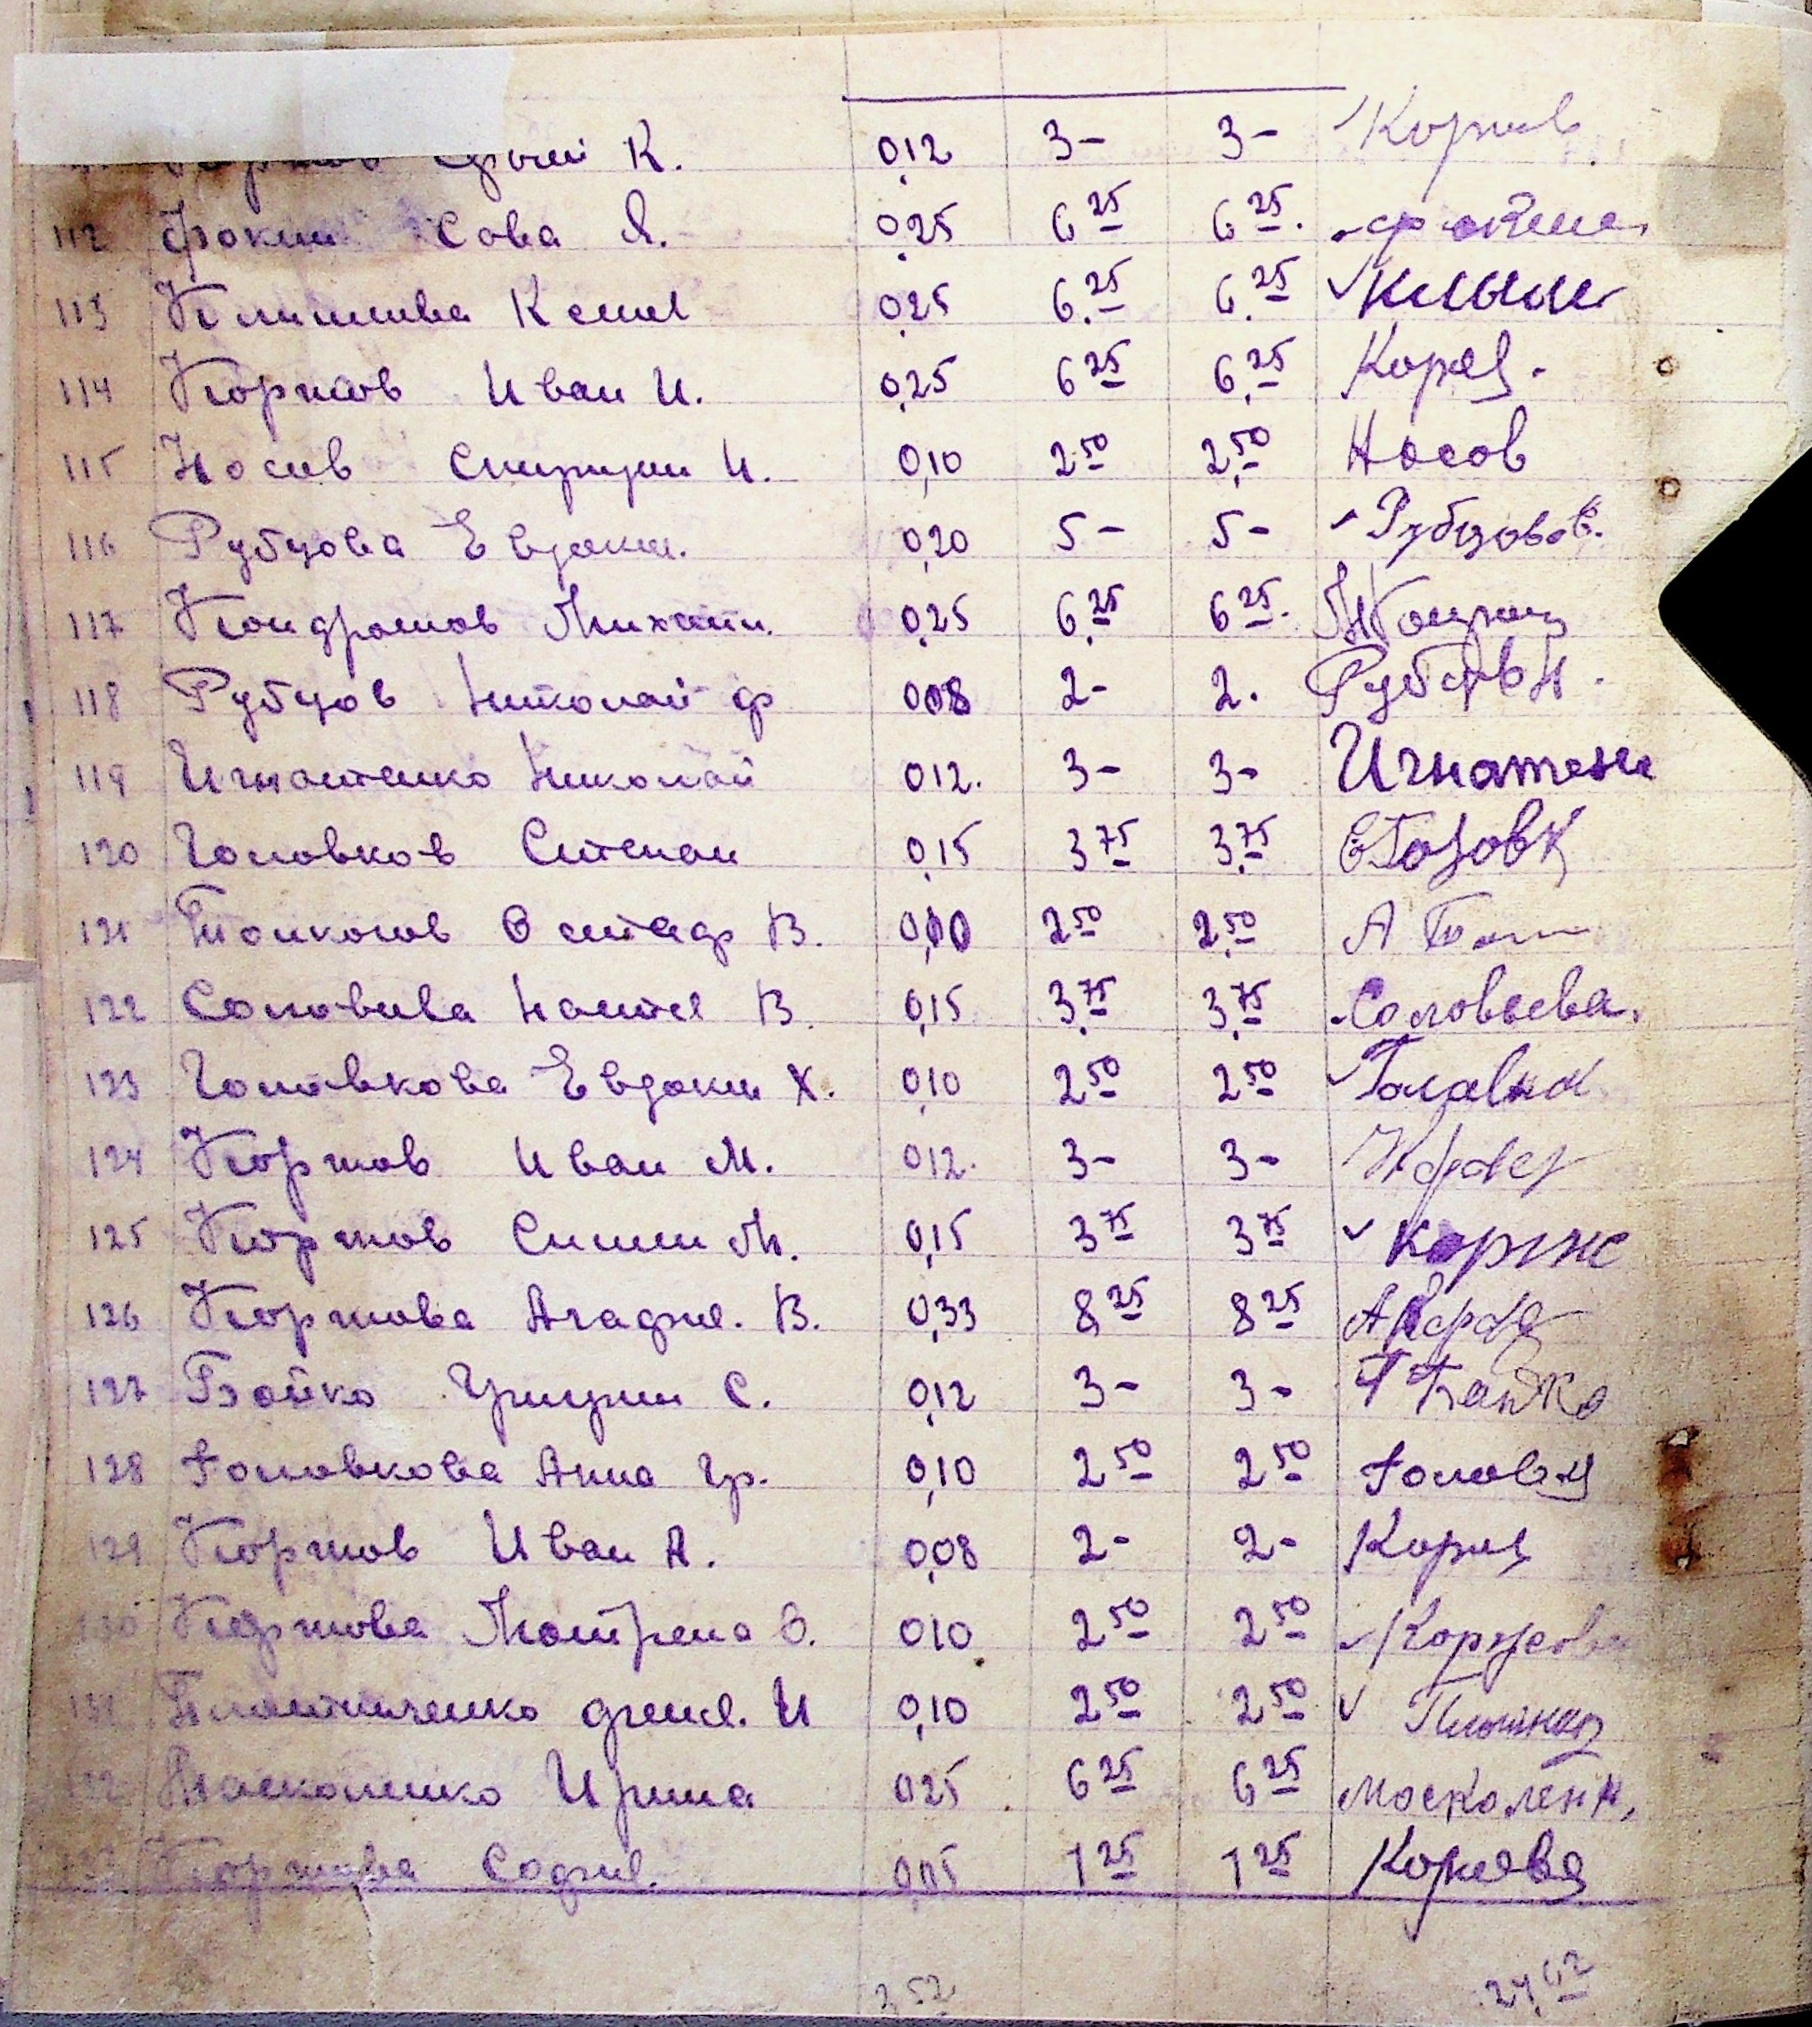 К. 0,12 3- 3-
112 Фокин Сова Я. 0,25 6 25 6 25.
113 Климова Ксения 0,25 6. 25 6. 25 Клыши
114 Коржов Иван И. 0,25 6 25 6. 25 Корж
115 Носов Спиридон И. 0,10 2 50 2, 50 Носов
116 Рубцова Евдоким. 0,20 5- 5- Рубцова Е.
117 Кондрашов Михаил. 0,25 6, 25 6 25.
118 Рубцов Николай Ф 0,08 2- 2. Рубцов Н.
119 Игнатенко Николай 0 12. 3- 3- Игнатенк
120 Головков Степан 0,15 3 75 3, 75
121 Толкачов Остап В. 0,10 2 50 2, 50 А
122 Соловьева Настя В. 0,15 3, 75 3, 75 Соловьева.
123 Головкова Евдоким Х. 0,10 2 50 2 50 Головк
124 Коржов Иван М. 0 12. 3- 3-
125 Коржов Симон М. 0,15 3 75 3 75 Корж
126 Коржова Агафия. В. 0,33 8 25 8 25
127 Бойко Григорий С. 0,12 3- 3- Г Бойко
128 Головкова Анна Гр. 0,10 2 50 2 50 Головк
129 Коржов Иван А. 0,08 2- 2- Корж
130 Коржова Мотрена О. 010 2 50 2 50 Коржова
131 И 0,10 2 50 2 50
132 Москаленко Ирина 025 6 25 6 25 Москаленк,
133 Коржова София. 0,05 1 25 1 25 Коржова
3 52